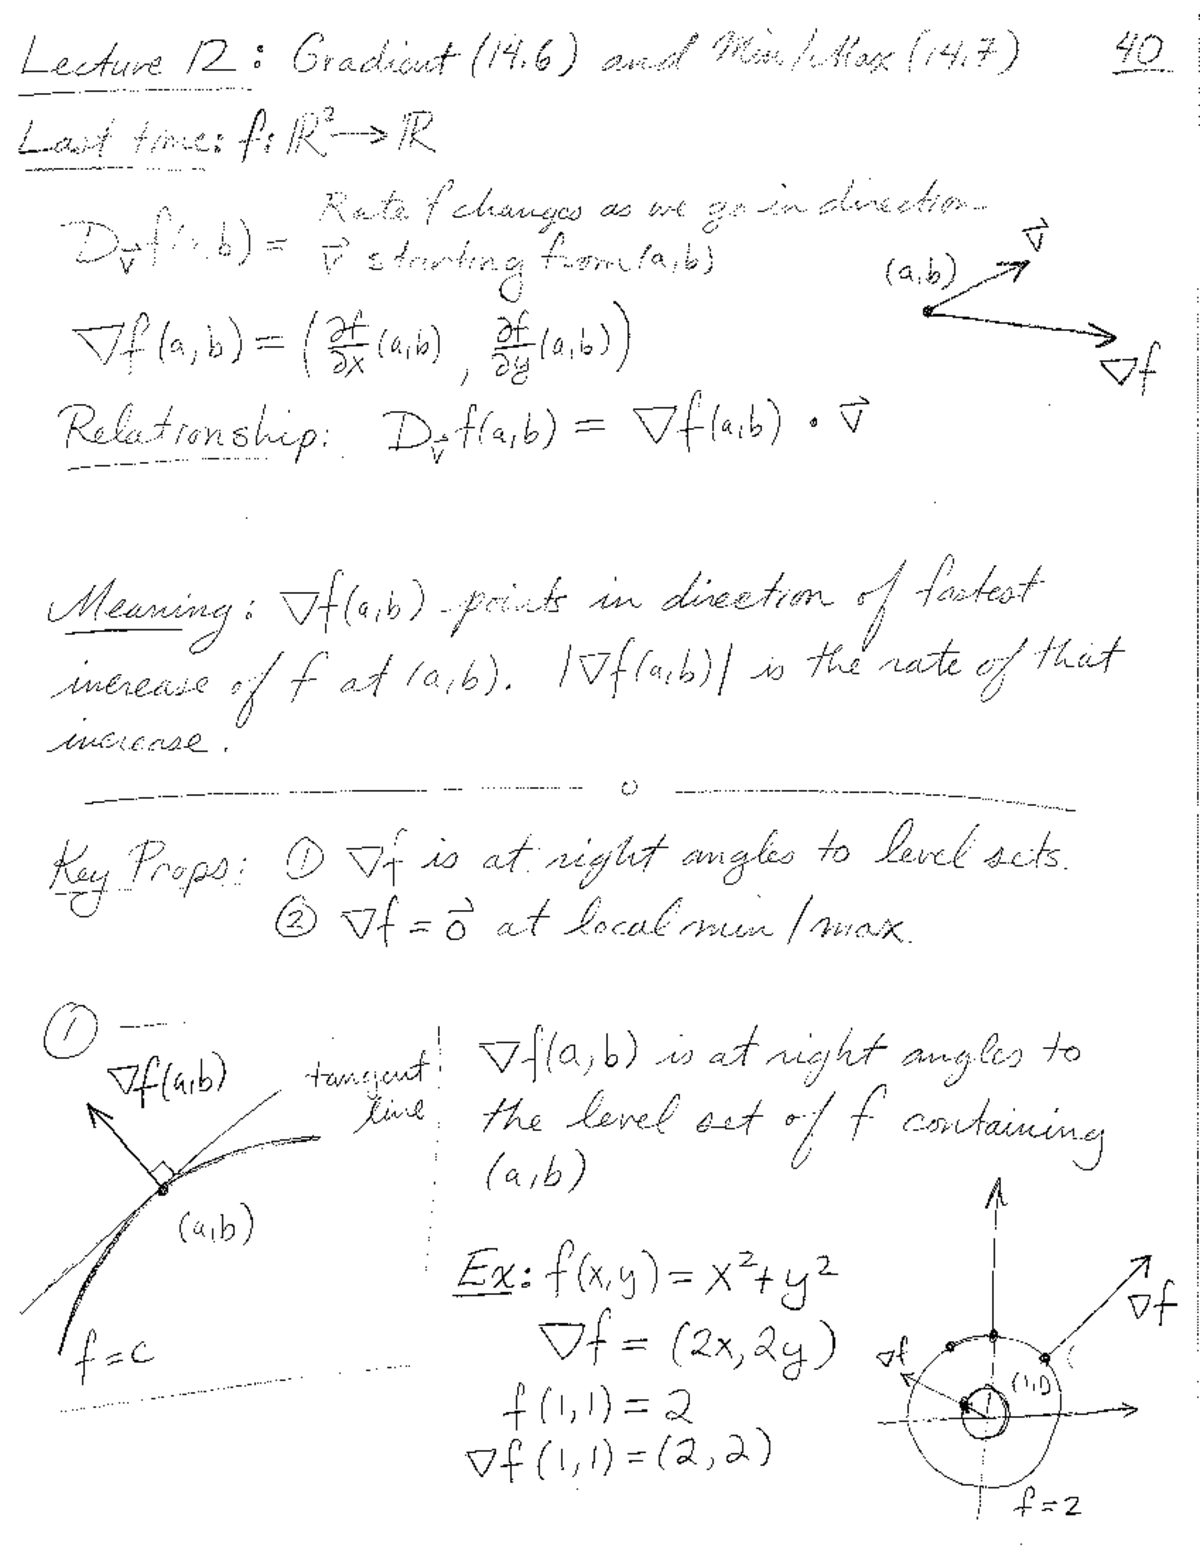 Lecture 12: Gradient (14.6) and Min/Max (14.7) 40
Last time: f: ℝ² → ℝ
D_v⃗ f(a,b) = Rate f changes as we go in direction
v⃗ starting from (a,b)
(a,b) v⃗
∇f
∇f(a,b) = (∂f/∂x (a,b), ∂f/∂y (a,b))
Relationship: D_v⃗ f(a,b) = ∇f(a,b) • v⃗
Meaning: ∇f(a,b) points in direction of fastest
increase of f at (a,b). |∇f(a,b)| is the rate of that
increase.
Key Props: ① ∇f is at right angles to level sets.
② ∇f = 0⃗ at local min/max.
①
∇f(a,b)
tangent
line
(a,b)
f=c
∇f(a,b) is at right angles to
the level set of f containing
(a,b)
Ex: f(x,y) = x²+y²
∇f = (2x, 2y)
f(1,1) = 2
∇f(1,1) = (2,2)
∇f
∇f
(1,1)
f=2